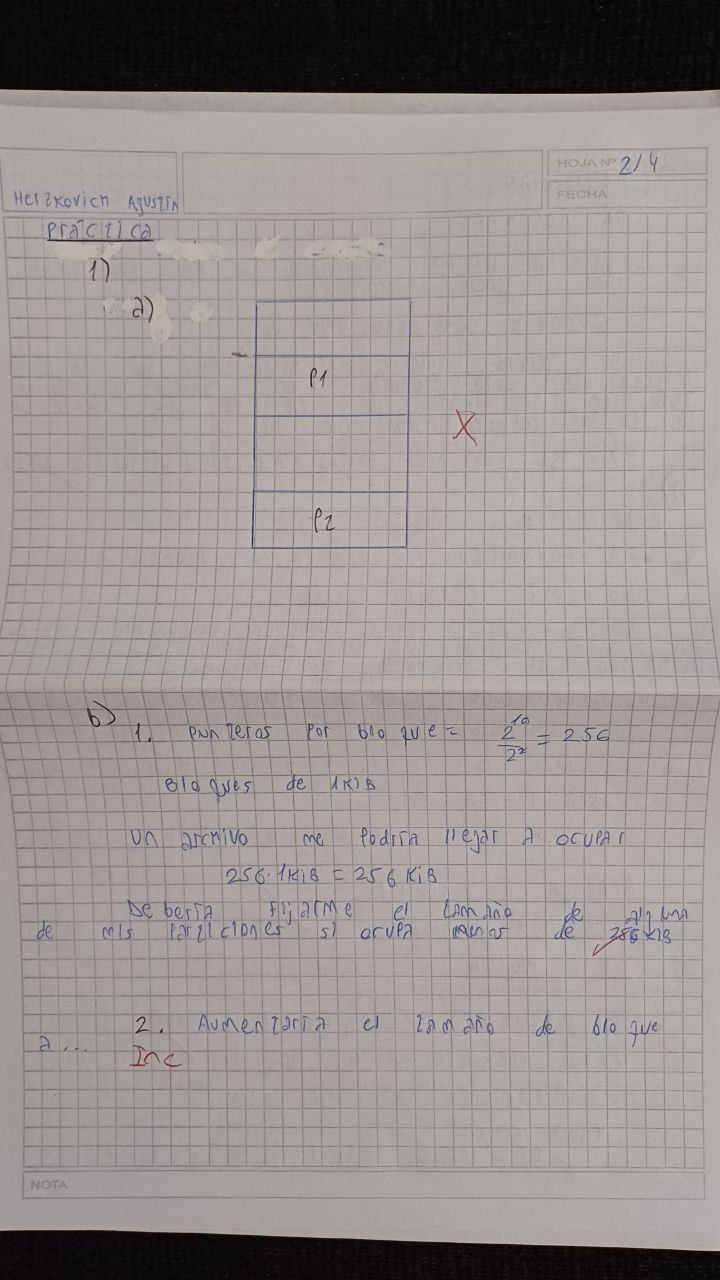 HOJA Nº 2/4
Herzkovich Agustin
FECHA
Práctica
1)
a)
P1
X
P2
b)
1. Punteros por bloque = 2^10 / 2^2 = 256
Bloques de 1KiB
Un archivo me podría llegar a ocupar
256.1KiB = 256 KiB
Debería fijarme el tamaño de alguna
de mis particiones si ocupa menos de 256 KiB
2. Aumentaría el tamaño de bloque
a...
Inc
NOTA